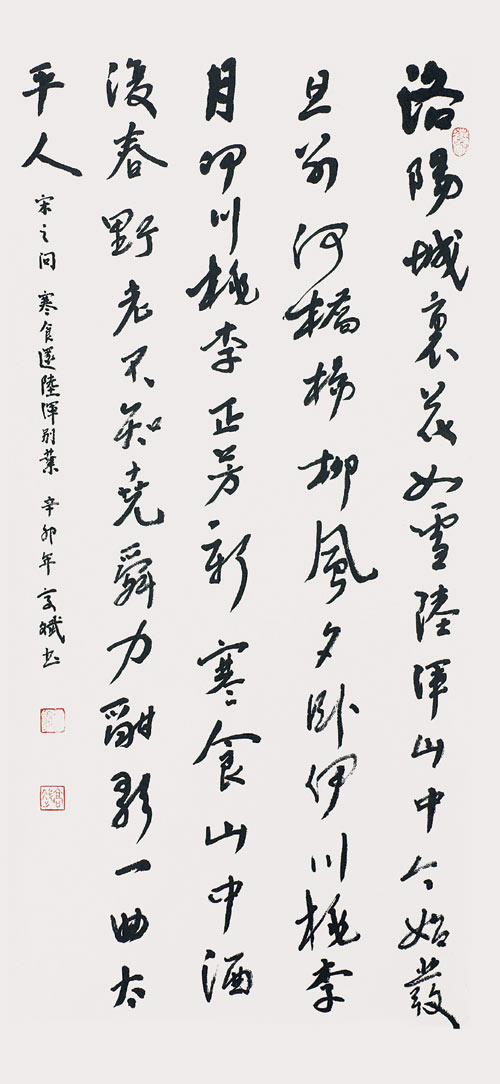 洛陽城裏花如雪陸渾山中今始發
旦別河橋楊柳風夕卧伊川桃李
月伊川桃李正芳新寒食山中酒
復春野老不知堯舜力酣歌一曲太
平人
宋之問 寒食還陸渾別業 辛卯年 斌书